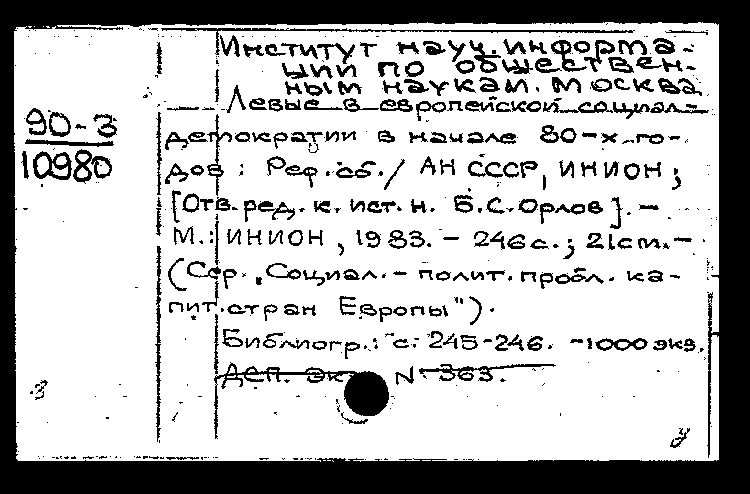 Институт науч. информа-
ции по обществен-
ным наукам. Москва
Левые в европейской социал-
90-3
10980
демократии в начале 80-х го-
дов : Реф. сб. / АН СССР, ИНИОН ;
[Отв. ред. к. ист. н. Б.С. Орлов]. -
М.: ИНИОН, 1983. - 246 с. ; 21 см. -
(Сер. "Социал.-полит. пробл. ка-
пит. стран Европы").
Библиогр.: с. 245-246. -1000 экз.
Деп. экз. N 363.
З
У